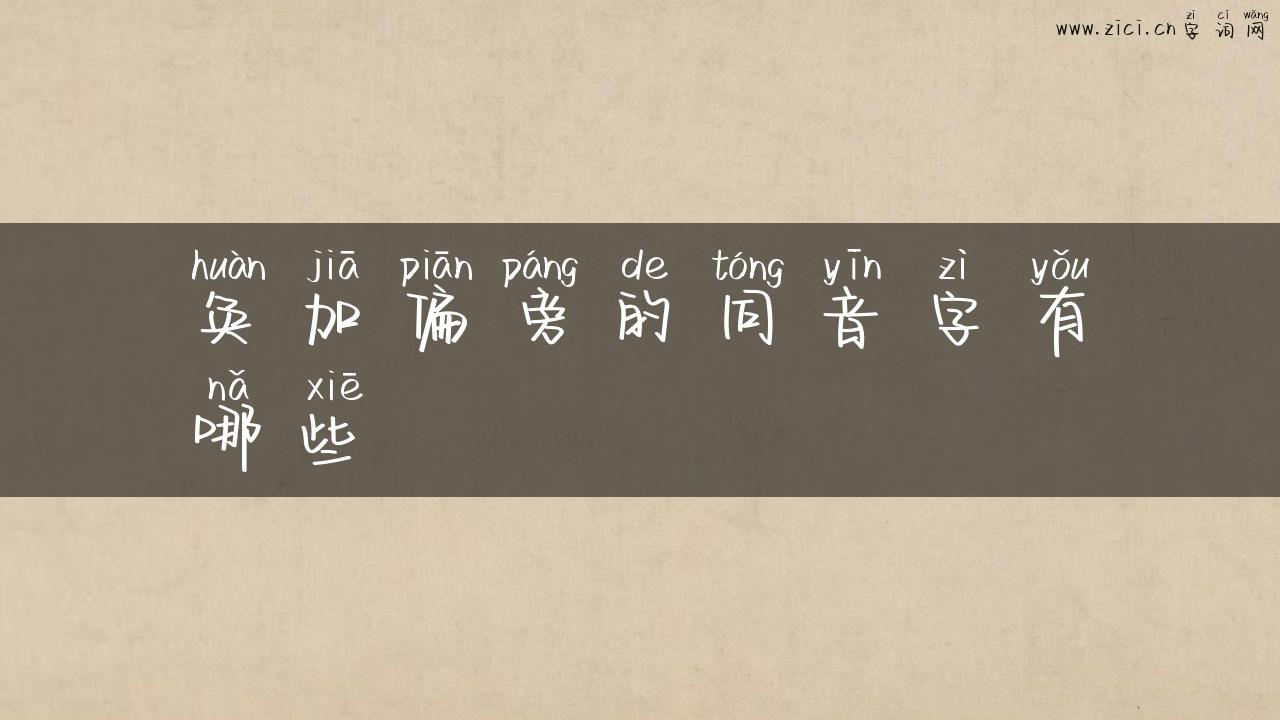 zì cí wǎng
www.zici.cn 字词网
huàn jiā piān páng de tóng yīn zì yǒu
奂加偏旁的同音字有
nǎ xiē
哪些